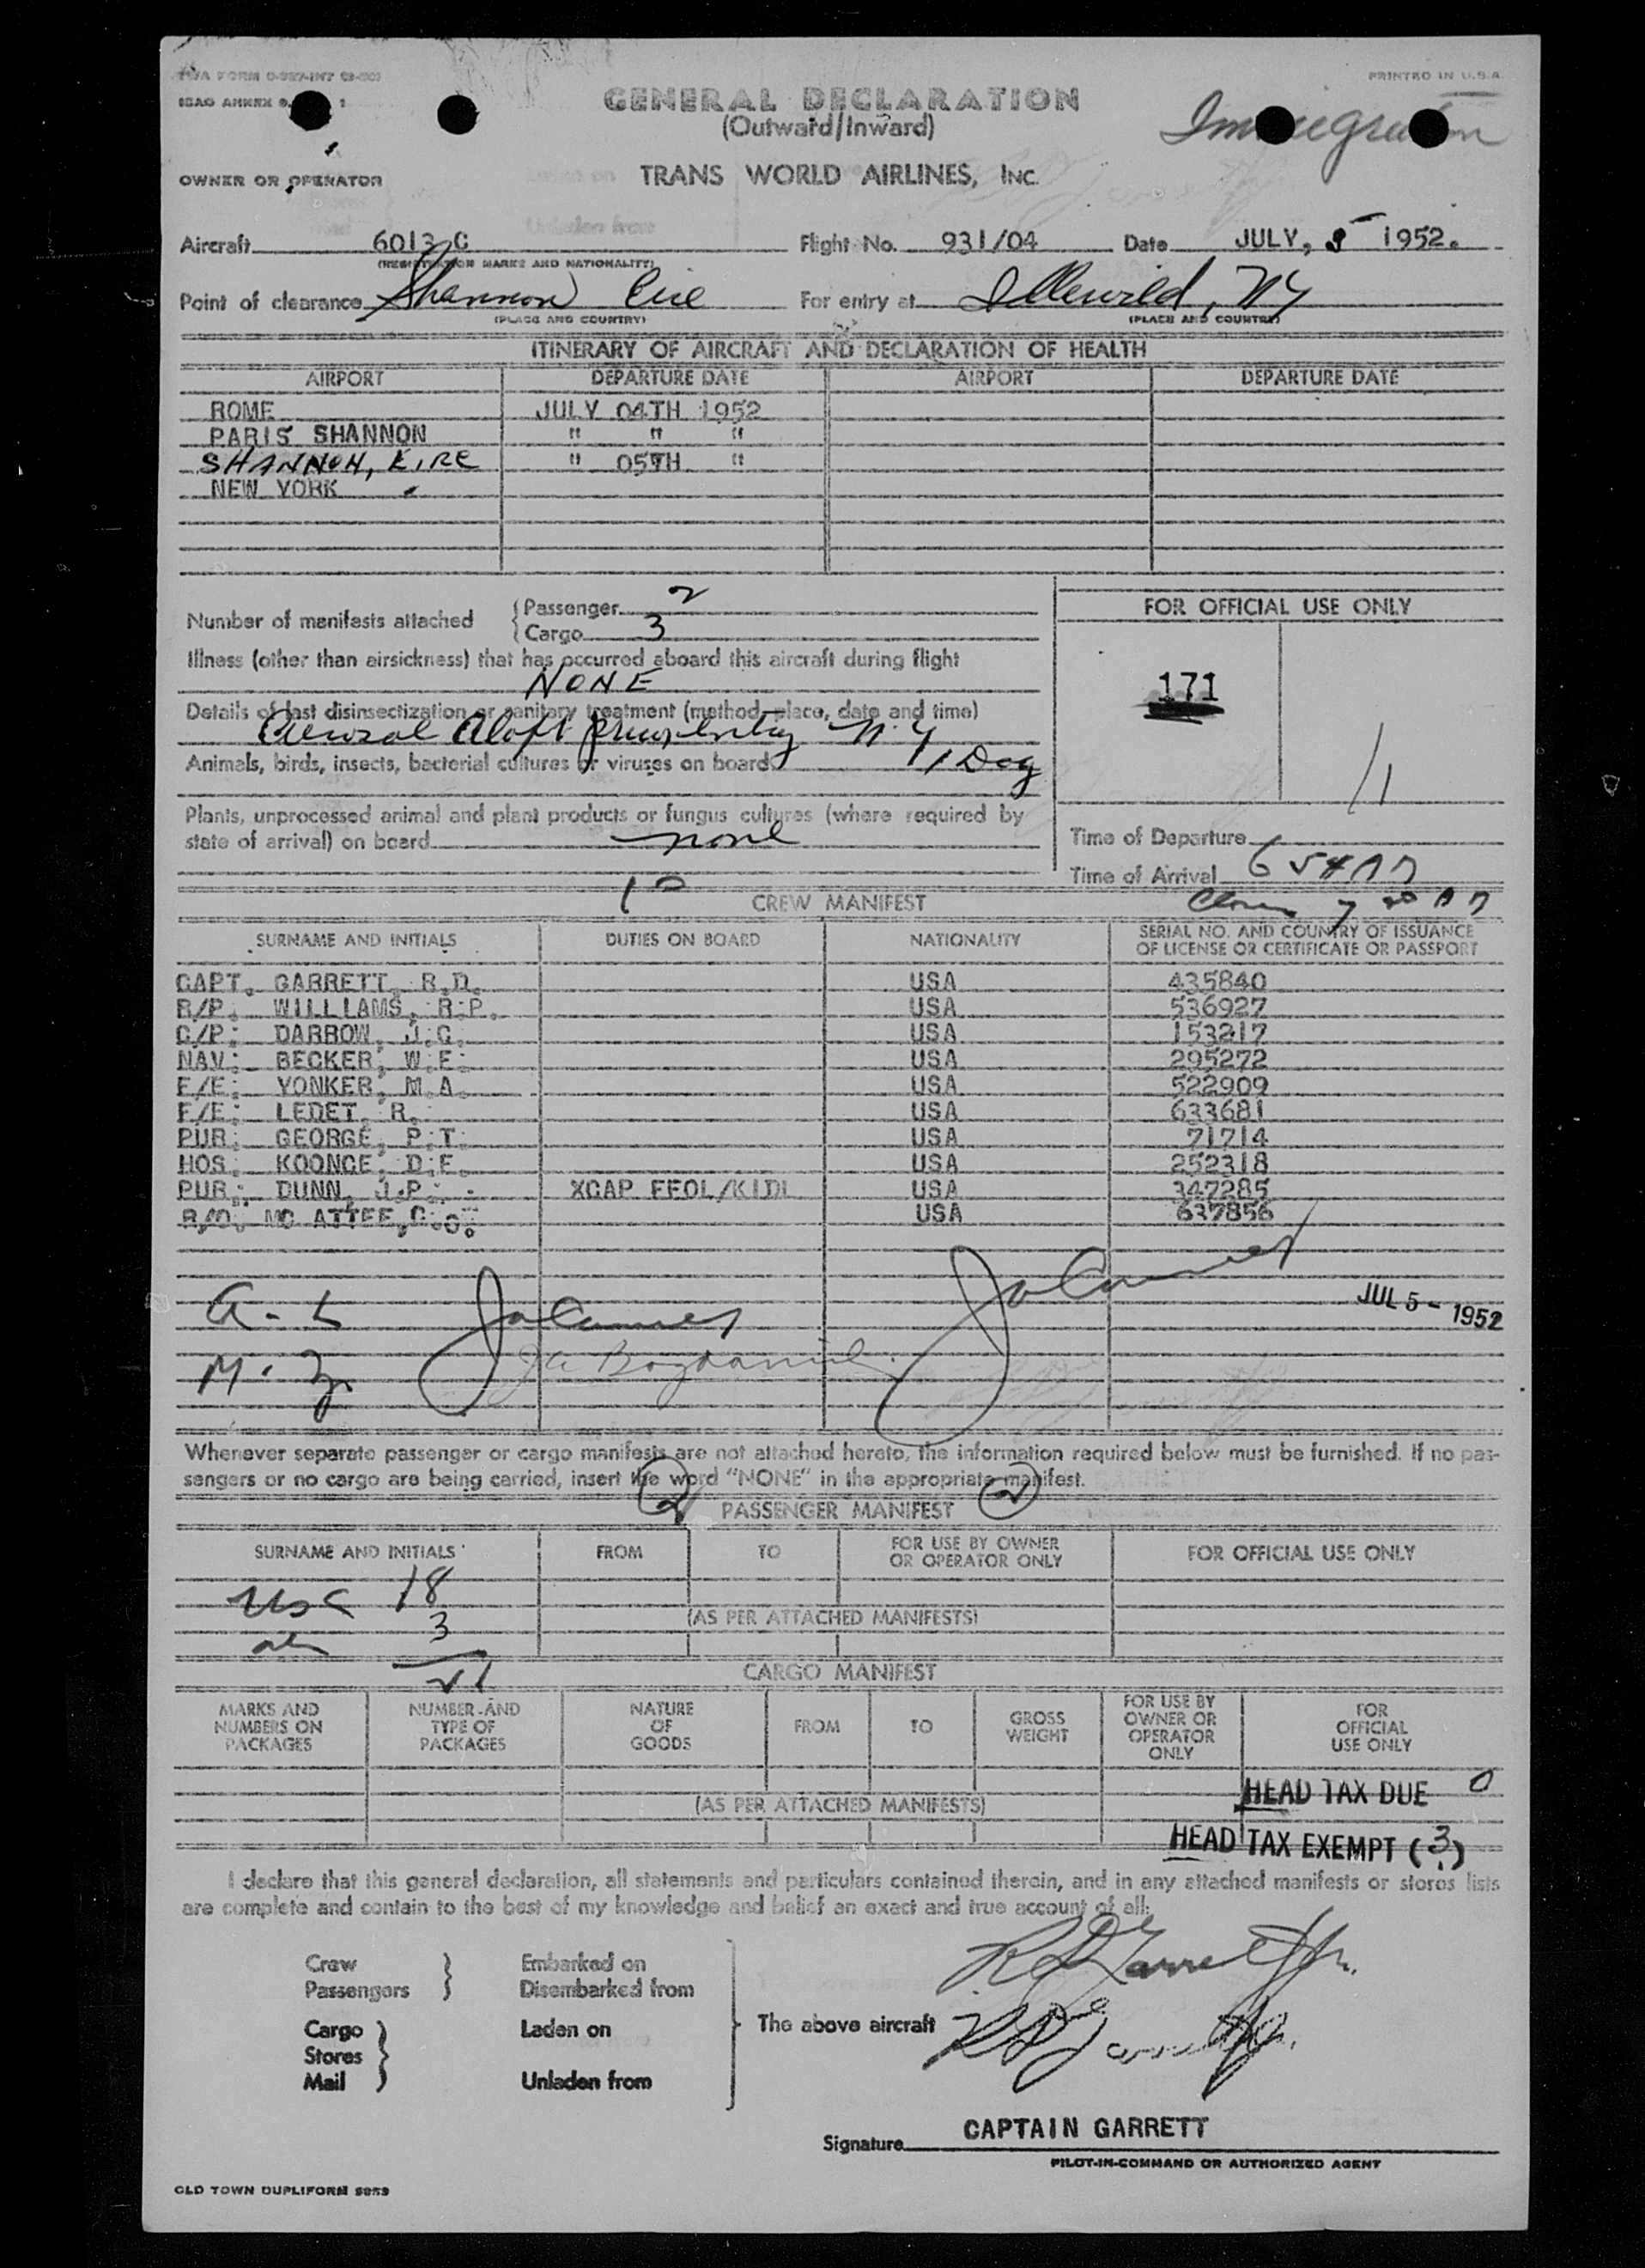 TWA FORM
PRINTED IN U.S.A.
ICAO ANNEX 9, 1
GENERAL DECLARATION
(Outward/Inward)
Immigration
OWNER OR OPERATOR
TRANS WORLD AIRLINES, INC.
Aircraft 6013 C Flight No. 931/04 Date JULY, 5 1952.
(REGISTRATION MARKS AND NATIONALITY)
Point of clearance Shannon Eire For entry at Idlewild, NY
(PLACE AND COUNTRY) (PLACE AND COUNTRY)
ITINERARY OF AIRCRAFT AND DECLARATION OF HEALTH
AIRPORT DEPARTURE DATE AIRPORT DEPARTURE DATE
ROME JULY 04TH 1952
PARIS SHANNON " " "
SHANNON, EIRE " 05TH "
NEW YORK
Number of manifests attached Passenger 2
Cargo 3
FOR OFFICIAL USE ONLY
Illness (other than airsickness) that has occurred aboard this aircraft during flight
NONE
171
Details of last disinsectization or sanitary treatment (method, place, date and time)
Aerosol Aloft prior N.Y.
Animals, birds, insects, bacterial cultures or viruses on board 1 Dog
11
Plants, unprocessed animal and plant products or fungus cultures (where required by
state of arrival) on board none
Time of Departure
Time of Arrival 654 AM
10
CREW MANIFEST
7 20 AM
SURNAME AND INITIALS DUTIES ON BOARD NATIONALITY SERIAL NO. AND COUNTRY OF ISSUANCE
OF LICENSE OR CERTIFICATE OR PASSPORT
CAPT. GARRETT, R.D. USA 435840
R/P. WILLIAMS, R.P. USA 536927
C/P: DARROW, J.G. USA 153217
NAV: BECKER, W.E. USA 295272
F/E: YONKER, M.A. USA 522909
F/E: LEDET, R. USA 633681
PUR: GEORGE, P.T. USA 71714
HOS: KOONCE, D.E. USA 252318
PUR: DUNN, J.P. XCAP FFOL/KIDL USA 347285
R/O. MC ATTEE, C.O. USA 637856
JUL 5 - 1952
Whenever separate passenger or cargo manifests are not attached hereto, the information required below must be furnished. If no pas-
sengers or no cargo are being carried, insert the word "NONE" in the appropriate manifest.
2 2
PASSENGER MANIFEST
SURNAME AND INITIALS FROM TO FOR USE BY OWNER
OR OPERATOR ONLY FOR OFFICIAL USE ONLY
USC 18
3
(AS PER ATTACHED MANIFESTS)
21
CARGO MANIFEST
MARKS AND
NUMBERS ON
PACKAGES
NUMBER AND
TYPE OF
PACKAGES
NATURE
OF
GOODS
FROM TO
GROSS
WEIGHT
FOR USE BY
OWNER OR
OPERATOR
ONLY
FOR
OFFICIAL
USE ONLY
HEAD TAX DUE 0
(AS PER ATTACHED MANIFESTS)
HEAD TAX EXEMPT (3)
I declare that this general declaration, all statements and particulars contained therein, and in any attached manifests or stores lists
are complete and contain to the best of my knowledge and belief an exact and true account of all:
Crew Embarked on
Passengers Disembarked from
R D Garrett Jr.
Cargo Laden on The above aircraft
R D Garrett Jr.
Stores
Mail Unladen from
Signature CAPTAIN GARRETT
PILOT-IN-COMMAND OR AUTHORIZED AGENT
OLD TOWN DUPLIFORM